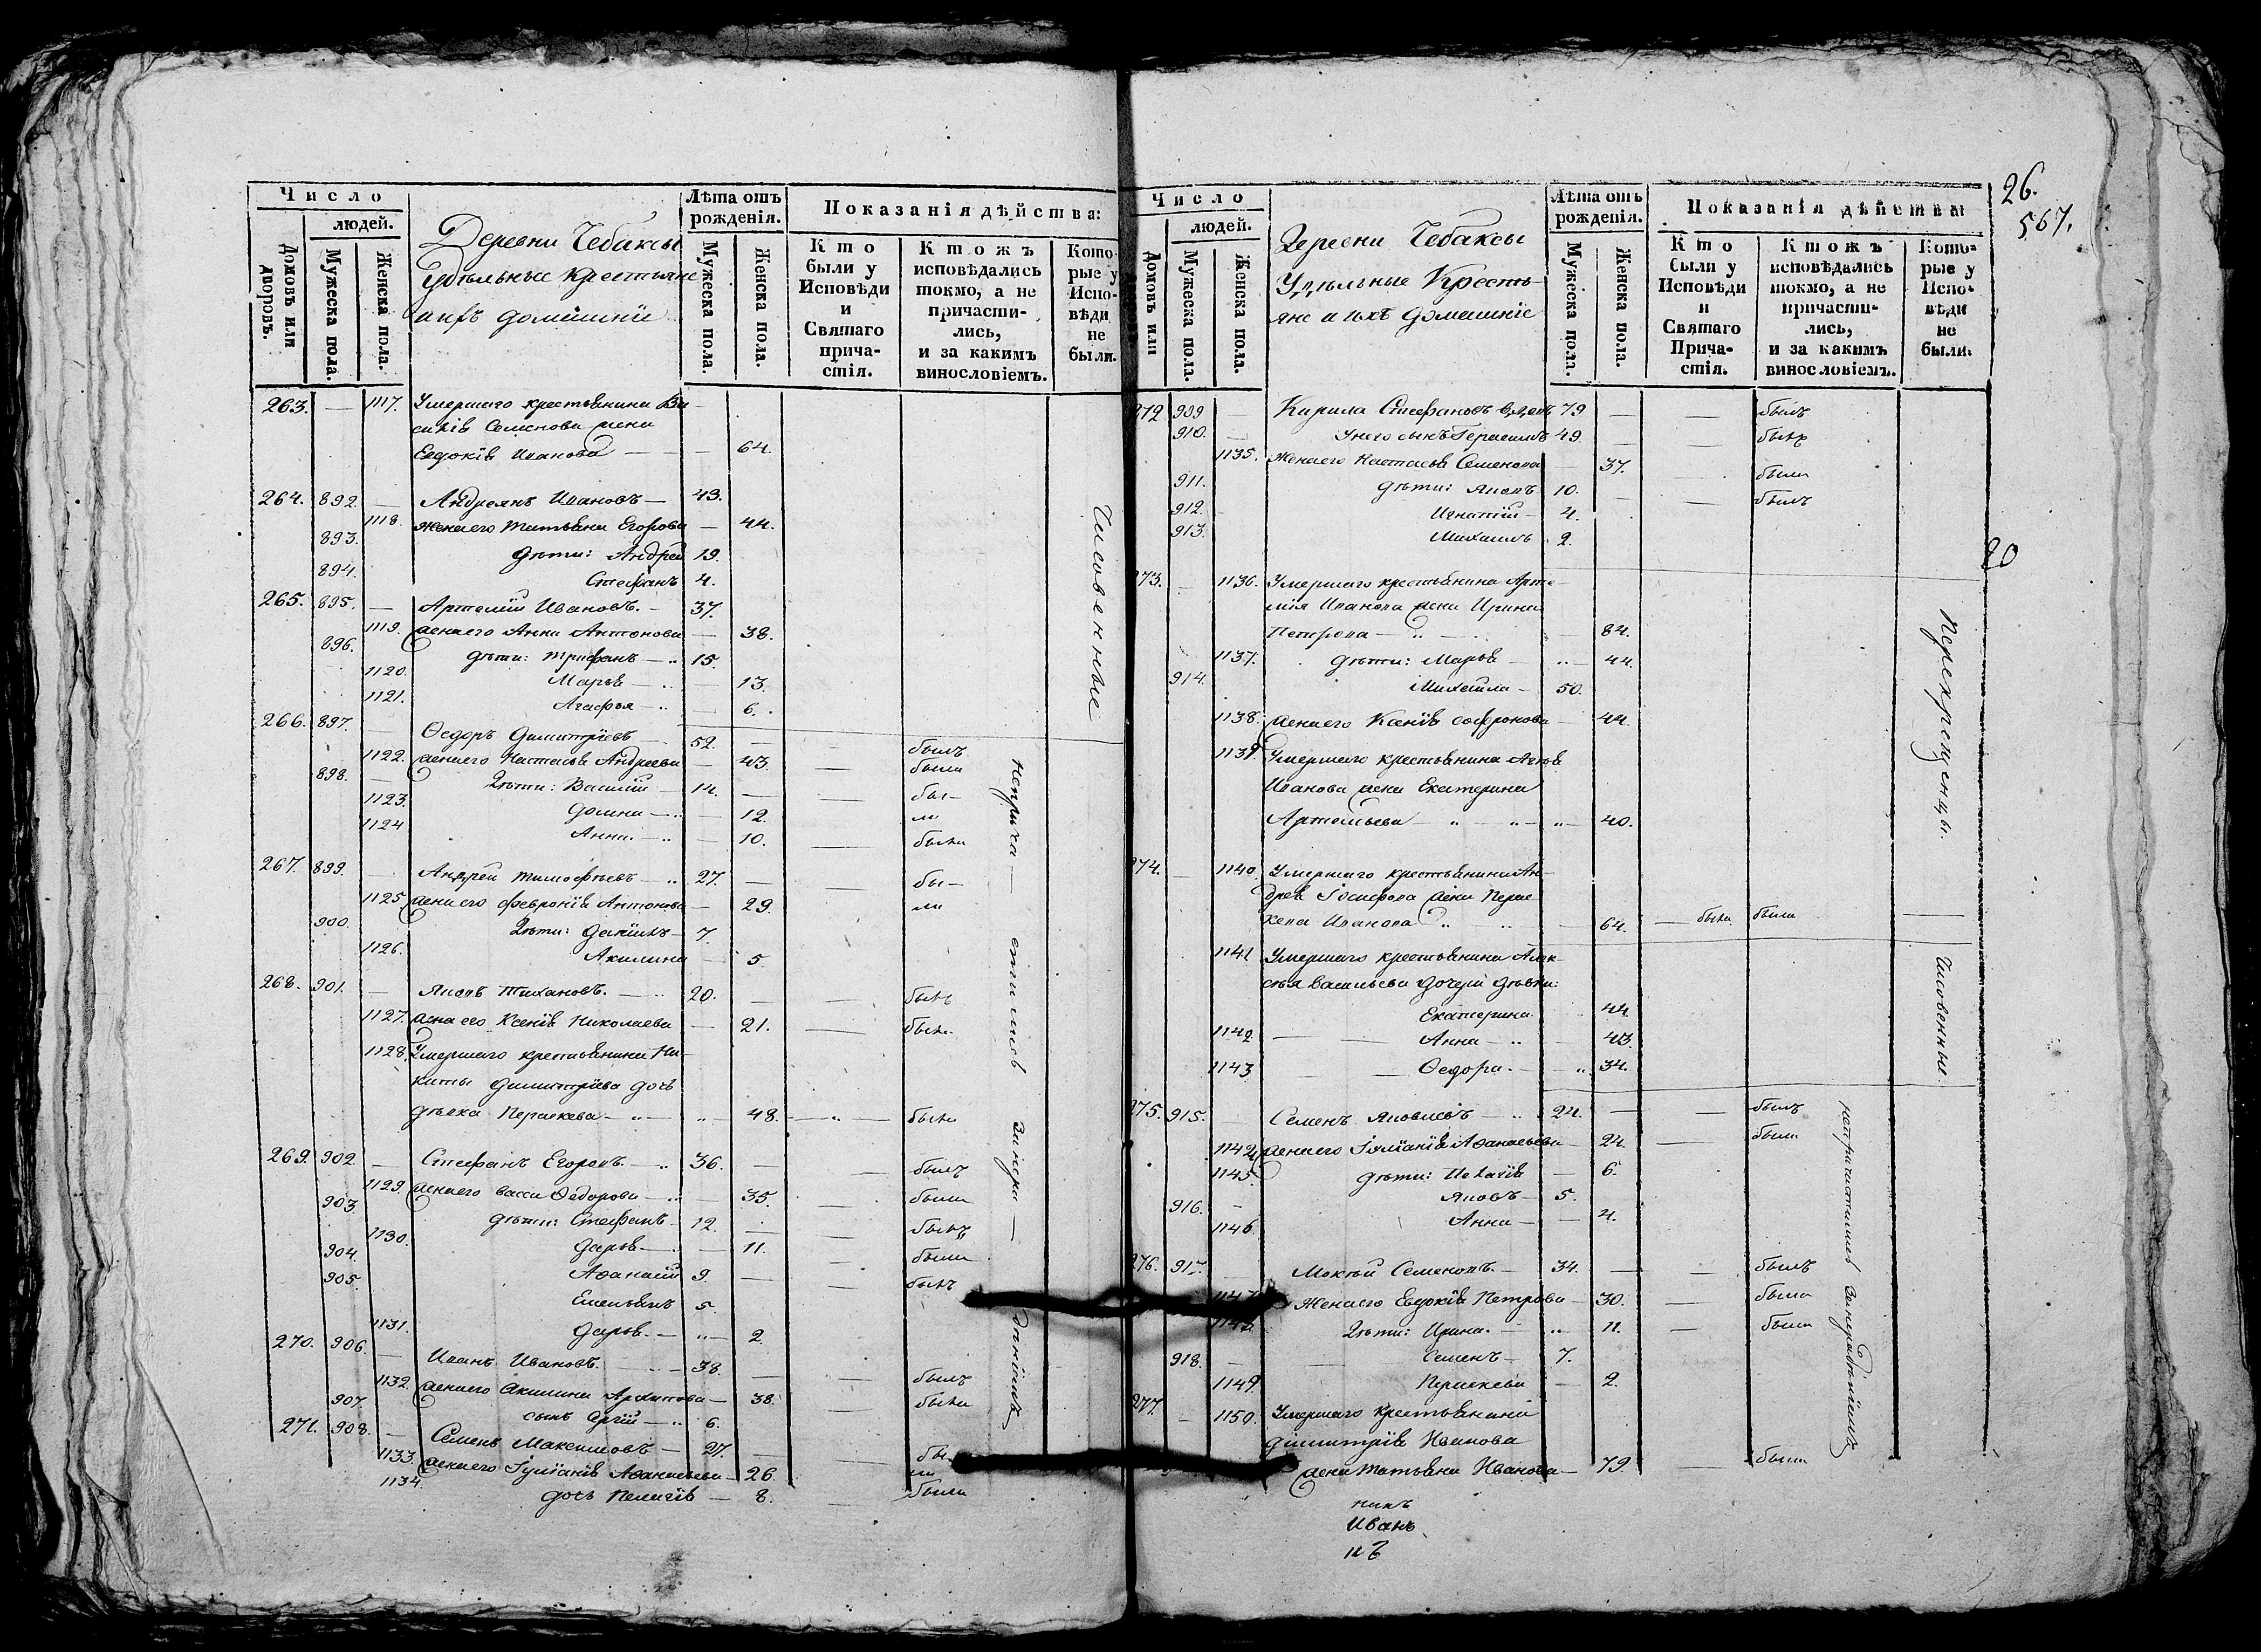 Число
людей.
Домовъ или дворовъ.
Мужеска пола.
Женска пола.
Деревни Чебаксы
Удѣльные крестьяне
ихъ домашніи
Лѣта отъ рожденія.
Мужеска пола.
Женска пола.
Показанія дѣйства:
Кто были у Исповѣди и Святаго причастія.
Ктожъ исповѣдались токмо, а не причастились, и за какимъ винословіемъ.
Которые у Исповѣди не были.
263. — 1117. Умершаго крестьянина Ва
силія Семенова жена
Евдокія Иванова — — 64.
264. 892. — Андреянъ Ивановъ — 43.
1118. жена его Татьяна Егорова — 44.
893. дѣти: Андрей 19.
894. Стефанъ 4.
265. 895. — Артемій Ивановъ. — 37.
1119. жена его Анна Антонова — 38.
896. дѣти: Трифанъ — 15.
1120. Марья — 13.
1121. Агафья — 6.
Чисовенныя
266. 897. Ѳедоръ Димитріевъ 52. — былъ
1122. жена его Настасья Андреева — 43. — была
898. — Дѣти: Василій — 14. — — бы-
1123. Домна — 12. ли
1124 Анна — 10. — была
267. 899. Андрей Тимофѣевъ — 27. — — бы-
1125 жена его Февронія Антонова — 29. — ли
900. Дѣти: Даніилъ — 7.
1126. Акилина 5.
268. 901. — Яковъ Тихановъ. — 20. — — былъ
1127. жена его Ксенія Николаева — 21. — была
1128. Умершаго крестьянина Ни-
киты Димитріева дочь
дѣвка Параскева — — 48. — была
269. 902. — Стефанъ Егоровъ. — 36. — — былъ
1129. жена его Васса Ѳедорова — 35. — была
903. дѣти: Стефанъ 12. — — былъ
1130. Дарья — 11. — была
904. Аѳанасій 9. — — былъ
905. Емельянъ 5.
1131. Дарья. — 2.
270. 906. — Иванъ Ивановъ. — 38. — — былъ
1132. жена его Акилина Архипова — 38. — была
907. сынъ Сергій — 6.
271. 908. — Семенъ Максимовъ — 27. — бы-
1133. жена его Іуліанія Аѳанасьева — 26. ли
1134. дочь Пелагія — 8. — была
Число
людей.
Домовъ или
Мужеска пола.
Женска пола.
Деревни Чебаксы
Удѣльные Кресть-
яне и ихъ домашніе
Лѣта отъ рожденія.
Мужеска пола.
Женска пола.
Показанія дѣйства
Кто были у Исповѣди и Святаго Причастія.
Ктожъ исповѣдались токмо, а не причастились, и за какимъ винословіемъ.
Которые у Исповѣди не были.
26.
567.
272 909 — Кирила Стефановъ вдовъ 79 — — былъ
910. — У него сынъ Герасимъ 49. — — былъ
1135. Жена его Настасья Семенова — 37. была
911. дѣти: Яковъ 10. — — былъ
912. Игнатій — 4.
913. Михаилъ 2.
20
273. — 1136. Умершаго крестьянина Арте-
мія Иванова жена Ирина
Петрова — — 84.
1137. дѣти: Марья — 44.
914. Михайла — 50.
1138. жена его Ксенія Софронова — 44.
1139. Умершаго крестьянина
Иванова жена Екатерина
Артемьева — 40.
Перекрещенцы.
274. — 1140. Умершаго крестьянина Ан-
дрея Іосифова жена Парас-
кева Иванова — 64. — была была —
1141 Умершаго крестьянина Алек-
сѣя Васильева дочери дѣвки:
Екатерина 44
1142 — — Анна — 43.
1143 — — Ѳедора. — 34.
Чисовенныя
275. 915. Семенъ Яковлевъ — 24. — — былъ
1144 жена его Іуліанія Аѳанасьева — 24. — была
1145. дѣти: Пелагія — 6.
916. — Яковъ — 5.
1146. Анна — — 4.
276. 917. Мокѣй Семеновъ. — 34. — — былъ
1147 Жена его Евдокія Петрова — 30. — была
1148. Дѣти: Ирина. — 11. — была
918. — Семенъ — 7.
1149. Параскева — 2.
277. — 1150. Умершаго Крестьянина
Димитрія Иванова
жена Татьяна Иванова — 79. — была
никъ
Иванъ